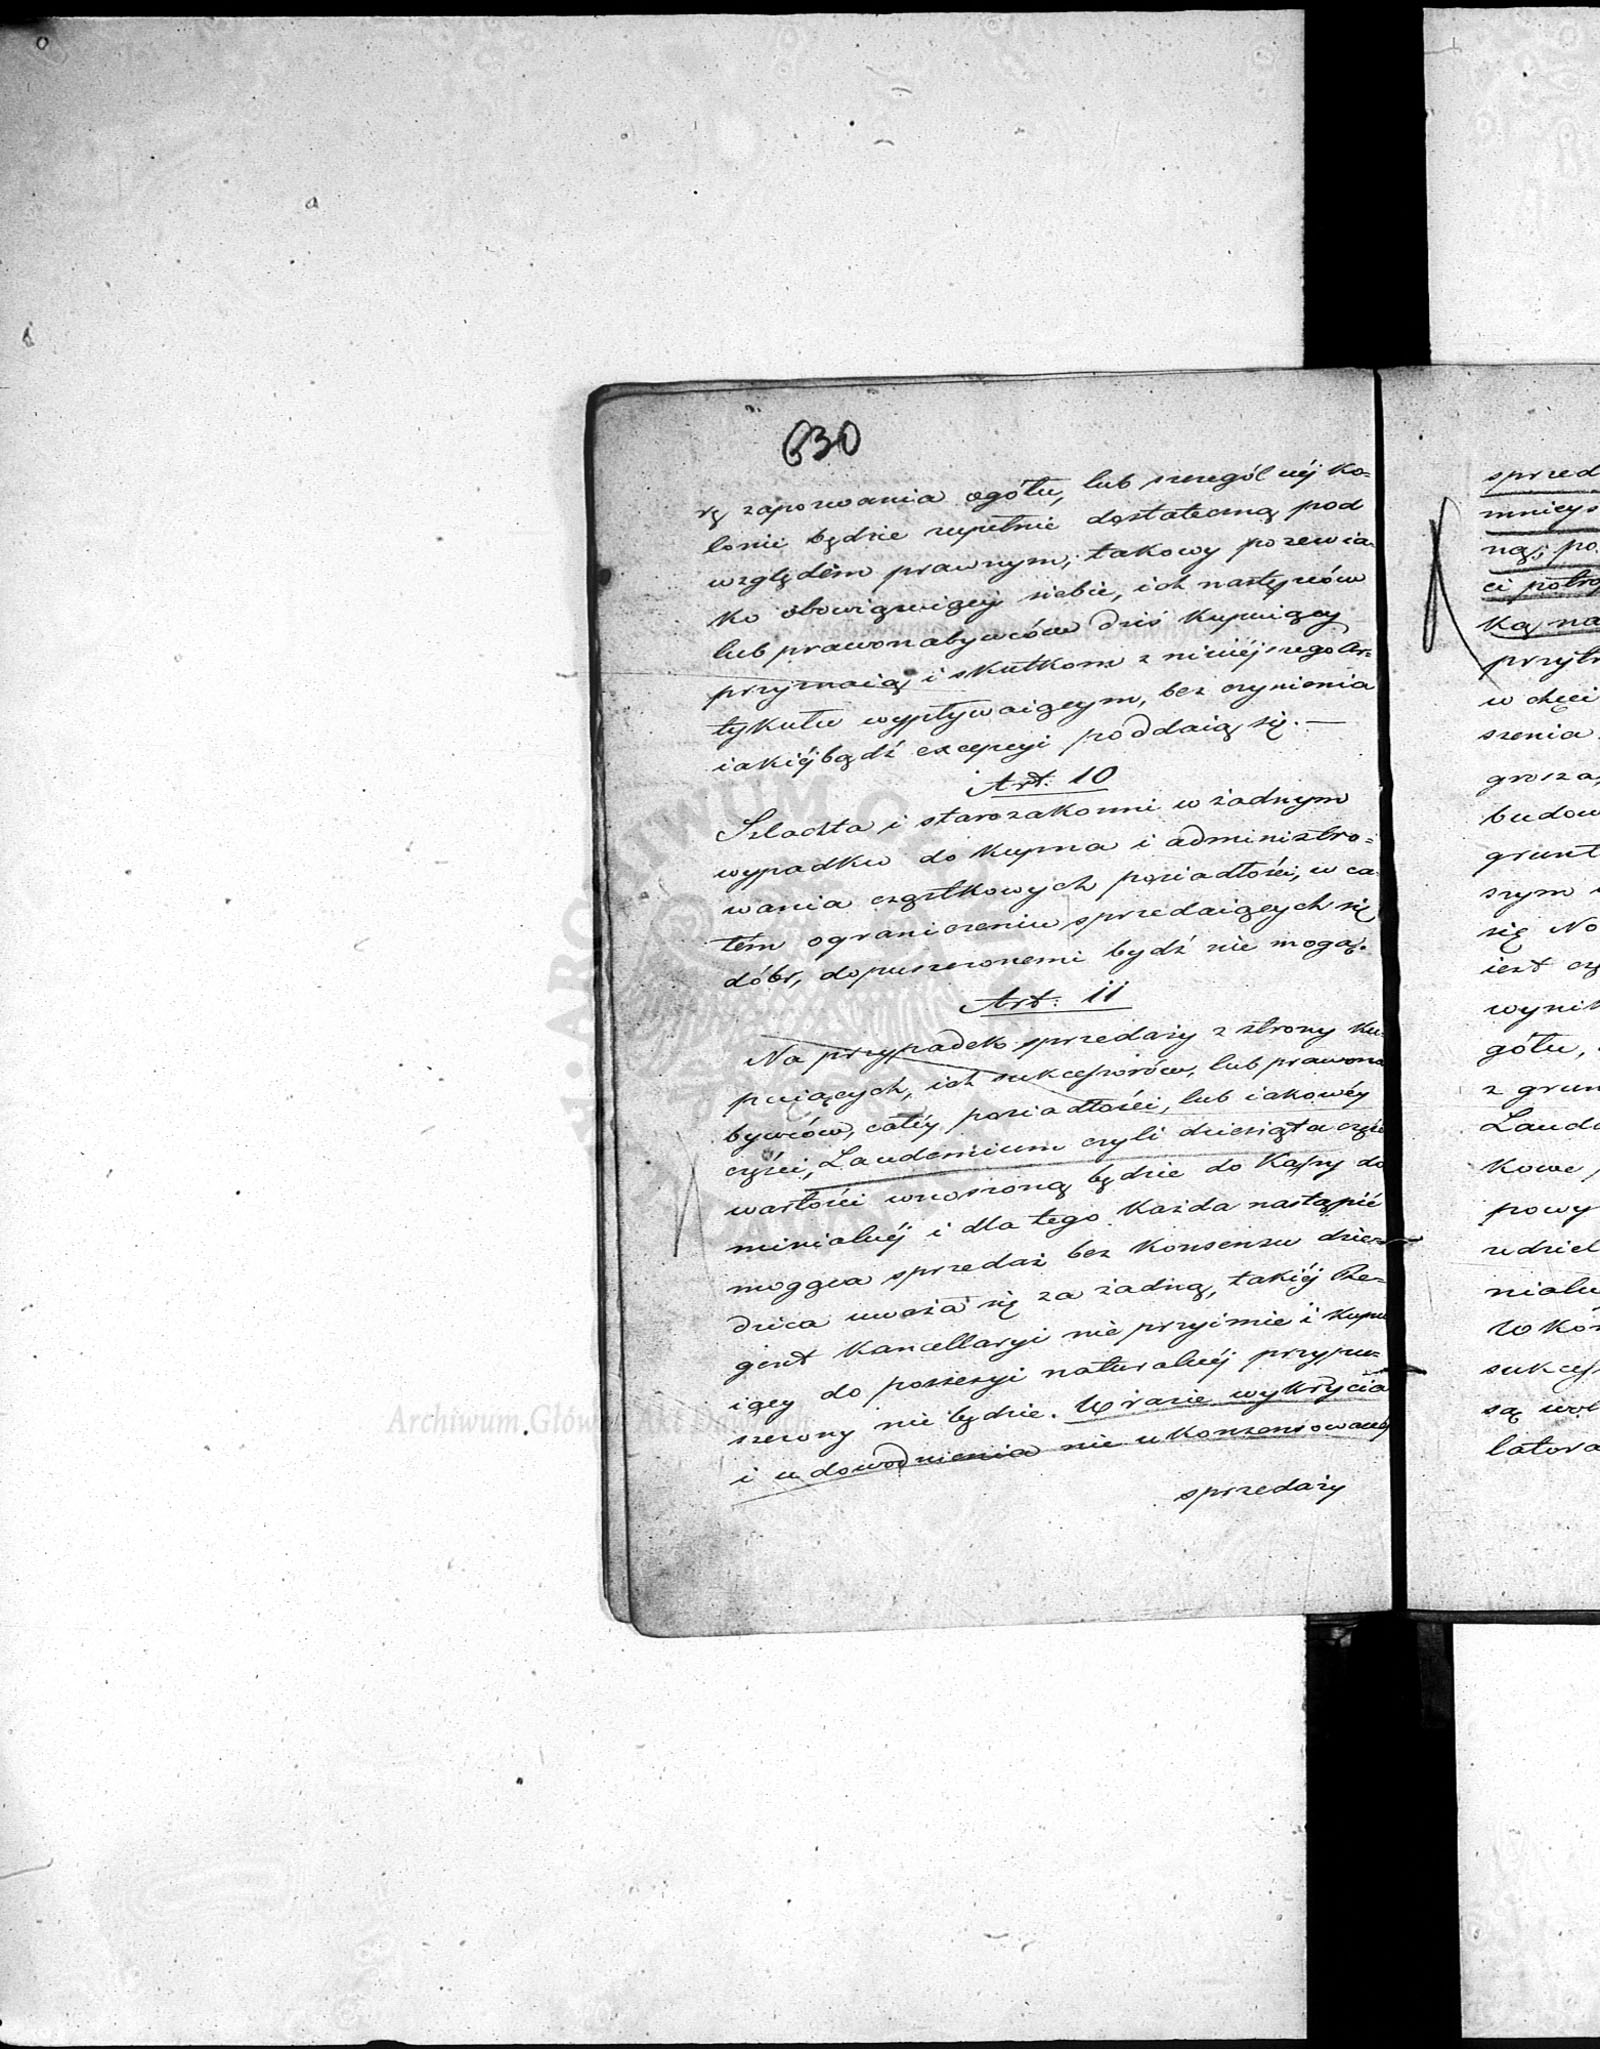 630
rę zapozwania ogółu, lub szczególnéj ko-
lonii będzie zupełnie dostateczną pod
względem prawnym; takowy pozew ia-
ko obowiązuiący siebie, ich następców
lub prawonabywców dziś kupuiący
przyznaią, i skutkom z niniéjszego Ar-
tykułu wypływaiącym, bez czynienia
iakiéjbądź excepcyi poddaią się.
Art. 10
Szlachta i starozakonni w żadnym
wypadku do kupna i administro-
wania cząstkowych posiadłości, w ca-
łém ograniczeniu sprzedaiących się
dóbr, dopuszczonemi bydź nie mogą.
Art: 11
Na przypadek sprzedaży z strony ku-
puiących, ich sukcessorów, lub prawona
bywców, całéy posiadłości, lub iakowéy
części, Laudemium czyli dziesiąta część
wartości wnoszoną będzie do Kassy do
minialnéj i dla tego każda nastąpić
mogąca sprzedaż bez konsensu dzie-
dzica uważa się za żadną, takiéj Re-
gent Kancellaryi nie przyimie i kupu
iący do possessyi naturalnéj przypu-
szczony nie będzie. W razie wykrycia
i udowodnienia nie ukonsensowanéy
sprzedaży
sprzed
mnieys
ną, po
ci potro
ką na
przytr
w chęci
szenia
grosza,
budow
grunt
szym
się No
iest czę
wynik
gółu,
z grun
Laude
kowe
powy
udziel
nialn
W kon
sukcess
są wol
latora